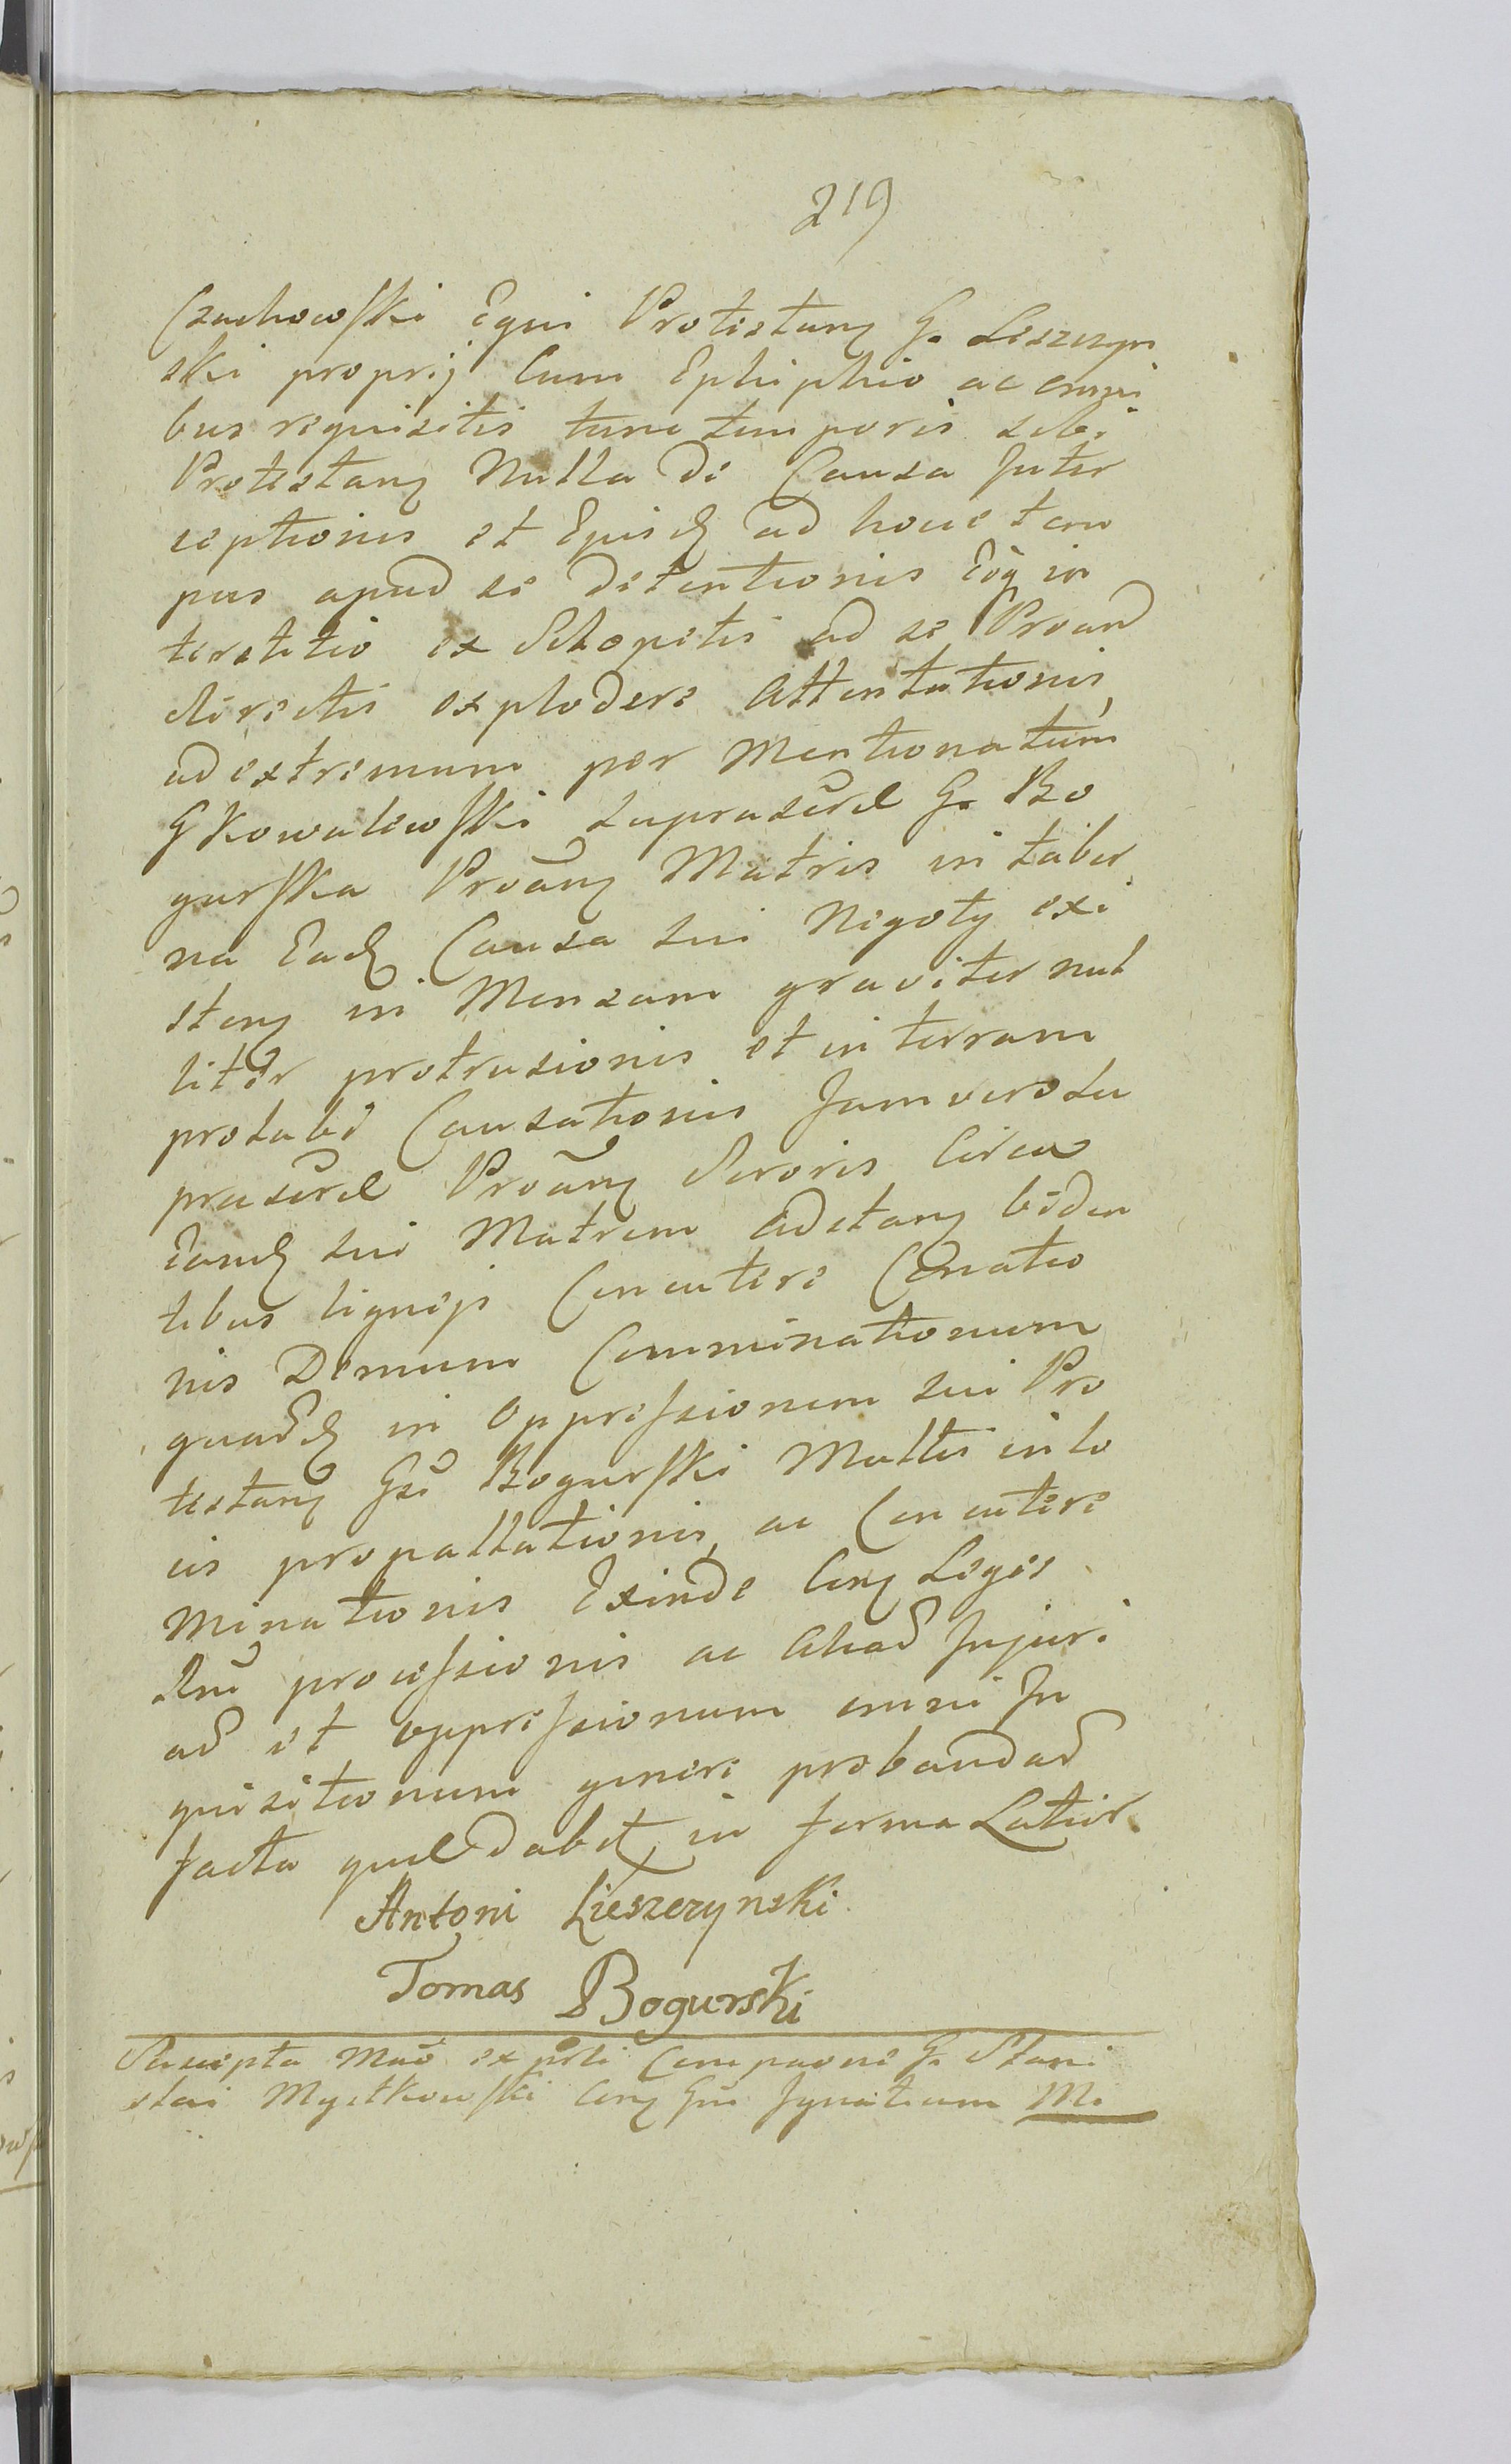 219
Czachowski Equi Protestanʒ G. Leszczyn
ski proprij Cum Ephiphio ac omni
bus requisitis tunc temporis sibi
Protestanʒ Nulla de Causa Inter
ceptionis et Eiusdʒ ad hocce tem
pus apud se detentionis Eoqʒ in
terstitio ex Sclopetis ad se Proand
directis explodere Attentationis,
ad extremum per Mentionatum
G Kowalewski suprascrae G. Bo
gurska Proanʒ Matris in taber
na Eadʒ Causa sui Negoty exi
stenʒ in Mensam graviter nul
liter protrusionis et in terram
prolabi Causationis Jam vero su
prascrae Proanʒ Sororis Circa
Eandʒ sui Matrem adstanʒ biden
tibus ligneis Concutere Conatio
nis Demum Comminationum
quarudʒ in Oppressionem sui Pro
testanʒ Gsi Bogurski Multis in lo
cis propallationis, ac Concutere
Minationis Exinde Conʒ Leges
Rni processionis ac aliar Injuri
ar et oppressionum omni In
quisitionum genere probandar
facta quae dabit in forma Latior
Antoni Leszczynski
Tomas Bogurski
Suscepta Mao ex prti Compaone G. Stani
slai Mystkowski Conʒ Gsu Ignatium Mi